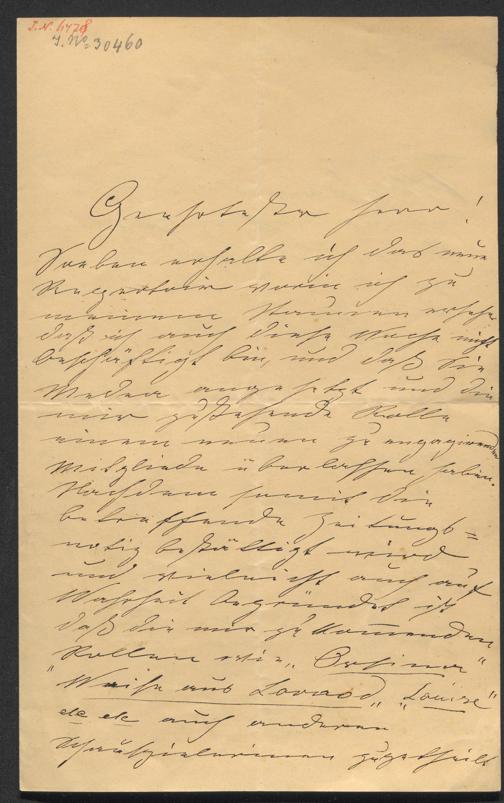 J. N. 61728
J. No 30460
Geehrtester Herr!
Soeben erhalte ich das neue
Repertoir worin ich zu
meinem Staunen ersehe
daß ich auch diese Woche nicht
beschäftigt bin, und daß Sie
Medea angesetzt und die
mir zustehende Rolle
einem neuen zu engagirenden
Mitgliede überlassen haben.
Nachdem somit die
betreffende Zeitungs=
notiz bestättigt wird
und vielleicht auch auf
Wahrheit begründet ist
daß die mir zukommenden
Rollen wie „Orsina"
„Waise aus Lowood" „Louise"
etc etc auch anderen
Schauspielerinen zugetheilt